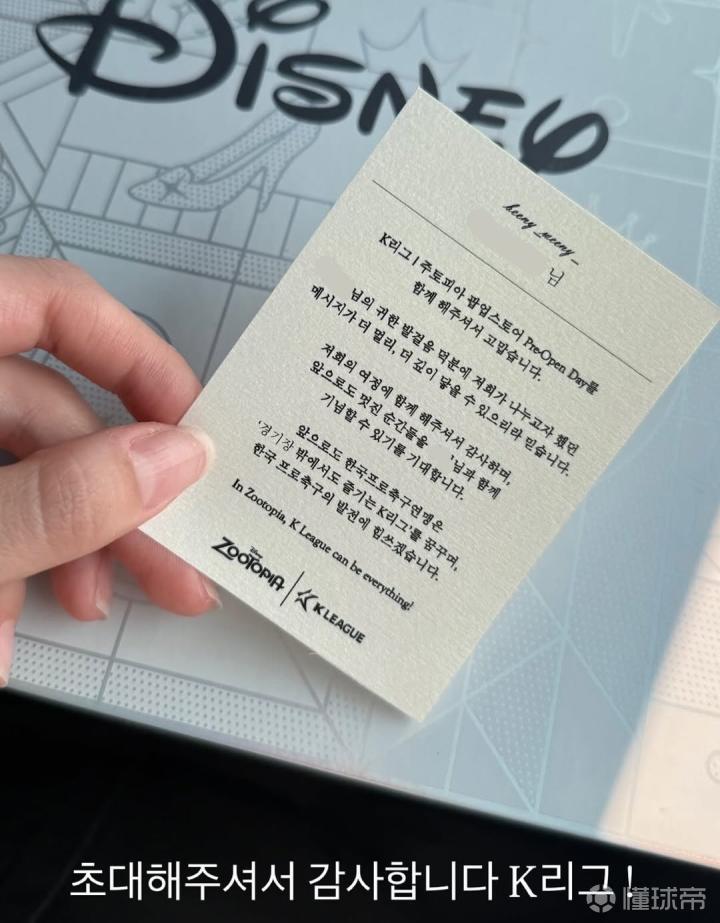 DISNEY
heeny_meeny_
님
K리그 | 주토피아 팝업스토어 Pre-Open Day를
함께 해주셔서 고맙습니다.
님의 귀한 발걸음 덕분에 저희가 나누고자 했던
메시지가 더 멀리, 더 깊이 닿을 수 있으리라 믿습니다.
저희의 여정에 함께 해주셔서 감사하며,
앞으로도 멋진 순간들을 '님과 함께
기념할 수 있기를 기대합니다.
앞으로도 한국프로축구연맹은
'경기장 밖에서도 즐기는 K리그'를 꿈꾸며,
한국 프로축구의 발전에 힘쓰겠습니다.
In Zootopia, K League can be everything!
Disney ZOOTOPIA | K LEAGUE
초대해주셔서 감사합니다 K리그 !
懂球帝